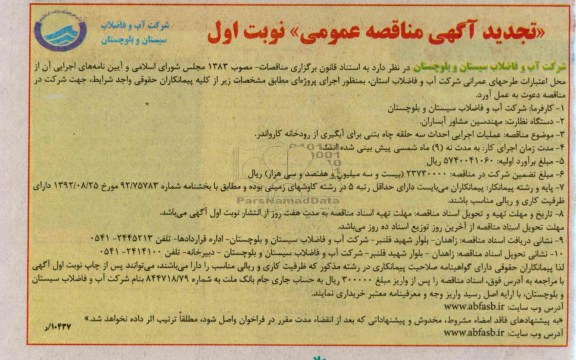 شرکت آب و فاضلاب
سیستان و بلوچستان
«تجدید آگهی مناقصه عمومی» نوبت اول
شرکت آب و فاضلاب سیستان و بلوچستان در نظر دارد به استناد قانون برگزاری مناقصات- مصوب ۱۳۸۳ مجلس شورای اسلامی و آیین نامه‌های اجرایی آن از
محل اعتبارات طرحهای عمرانی شرکت آب و فاضلاب استان، بمنظور اجرای پروژه‌ای مطابق مشخصات زیر از کلیه پیمانکاران حقوقی واجد شرایط، جهت شرکت در
مناقصه دعوت به عمل آورد.
۱- کارفرما: شرکت آب و فاضلاب سیستان و بلوچستان
۲- دستگاه نظارت: مهندسین مشاور آبساران.
۳- موضوع مناقصه: عملیات اجرایی احداث سه حلقه چاه بتنی برای آبگیری از رودخانه کارواندر.
۴- مدت زمان اجرای کار: به مدت نه (۹) ماه شمسی پیش بینی شده است.
۵- مبلغ برآورد اولیه: ۵۷۴۰۰۴۱۰۶۰ ریال
۶- مبلغ تضمین شرکت در مناقصه: ۲۳۷۳۰۰۰۰ (بیست و سه میلیون و هفتصد و سی هزار) ریال
۷- پایه و رشته پیمانکار: پیمانکاران می‌بایست دارای حداقل رتبه ۵ در رشته کاوشهای زمینی بوده و مطابق با بخشنامه شماره ۹۲/۷۵۷۸۳ مورخ ۱۳۹۲/۰۸/۲۵ دارای
ظرفیت کاری و ریالی مناسب باشند.
۸- تاریخ و مهلت تهیه و تحویل اسناد مناقصه: مهلت تهیه اسناد مناقصه به مدت هفت روز از انتشار نوبت اول آگهی می‌باشد.
مهلت تحویل اسناد مناقصه از آخرین روز توزیع اسناد ده روز می‌باشد.
۹- نشانی دریافت اسناد مناقصه: زاهدان- بلوار شهید قلنبر- شرکت آب و فاضلاب سیستان و بلوچستان- اداره قراردادها- تلفن ۲۴۴۵۲۱۳- ۰۵۴۱
۱۰- نشانی تحویل اسناد مناقصه: زاهدان - بلوار شهید قلنبر- شرکت آب و فاضلاب سیستان و بلوچستان - دبیرخانه- تلفن ۲۴۱۴۱۰۰- ۰۵۴۱
لذا پیمانکاران حقوقی دارای گواهینامه صلاحیت پیمانکاری در رشته مذکور که ظرفیت کاری و ریالی مناسب را دارا می‌باشند، می‌توانند پس از چاپ نوبت اول آگهی
با مراجعه به آدرس فوق، اسناد مناقصه را پس از واریز مبلغ ۳۰۰۰۰۰ ریال به حساب جاری جام بانک ملت به شماره ۸۴۴۷۱۸/۷۹ بنام شرکت آب و فاضلاب سیستان
و بلوچستان، با ارایه اصل رسید واریز وجه و معرفینامه معتبر خریداری نمایند.
آدرس وب سایت: www.abfasb.ir
«به پیشنهادهای فاقد امضاء مشروط، مخدوش و پیشنهاداتی که بعد از انقضاء مدت مقرر در فراخوان واصل شود، مطلقاً ترتیب اثر داده نخواهد شد.»
آدرس وب سایت: www.abfasb.ir
۱۰۴۳۷/ر
ParsNamadData